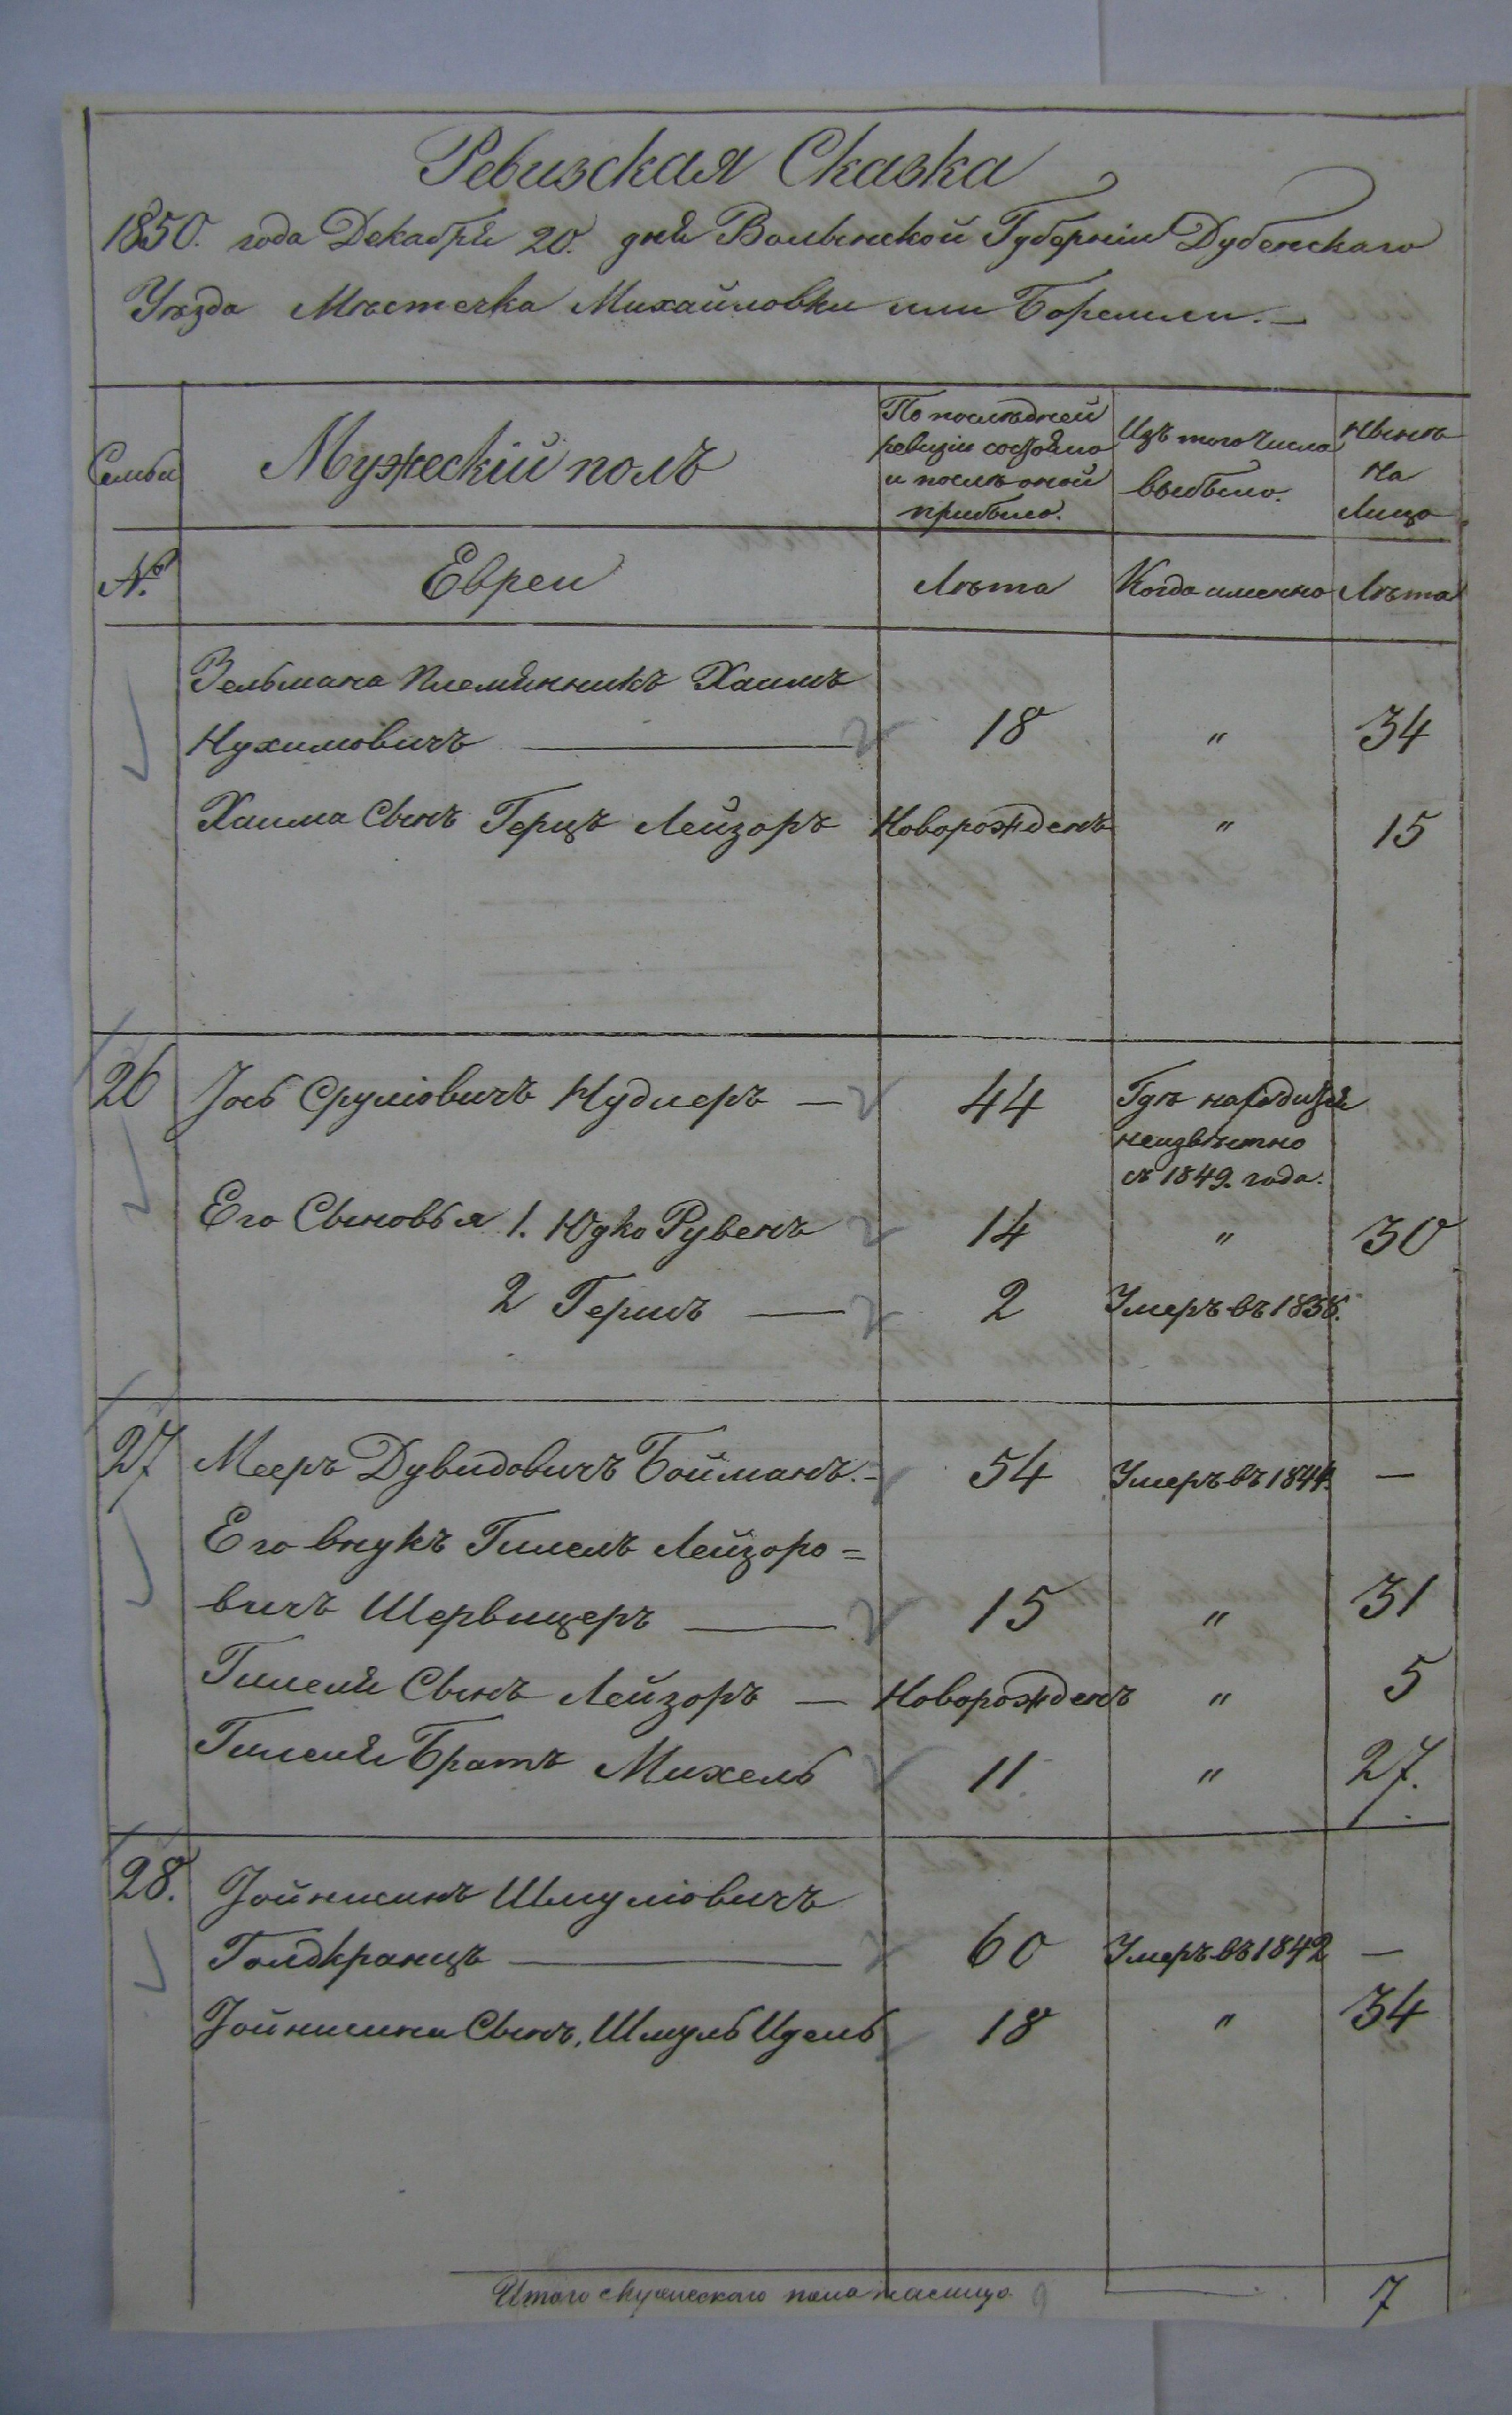 Ревизская Сказка
1850. года Декабря 20. дня Волынской Губерніи Дубенскаго
Уѣзда Мѣстечка Михайловки или Боремли. —
Семьи
Мужескій полъ
По послѣдней
ревизіи состояло
и послѣ оной
прибыло.
Изъ того числа
выбыло.
Нынѣ
на
лицо
№
Евреи
Лѣта
Когда именно
Лѣта
Зельмана племянникъ Хаимъ
Нухимовичъ — 18 " 34
Хаима Сынъ Герцъ Лейзоръ Новорожденъ " 15
26 Іось Сруліовичъ Нудлеръ — 44 Гдѣ находится
неизвѣстно
съ 1849. года.
Его Сыновья 1. Юдко Рувенъ 14 " 30
2 Гершъ — 2 Умеръ въ
27 Мееръ Дувидовичъ Бойманъ. - 54 Умеръ въ 1844. —
Его внукъ Гилель Лейзоро=
вичъ Шервицеръ — 15 " 31
Гилеля Сынъ Лейзоръ — Новорожденъ " 5
Гилеля Братъ Михель 11 " 27.
28. Іойнисинъ Шмуліовичъ
Голдкранцъ — 60 Умеръ въ 1842 —
Іойнисина Сынъ, Шмуль Идель 18 " 34
Итого мужескаго пола налицо 9 — 7